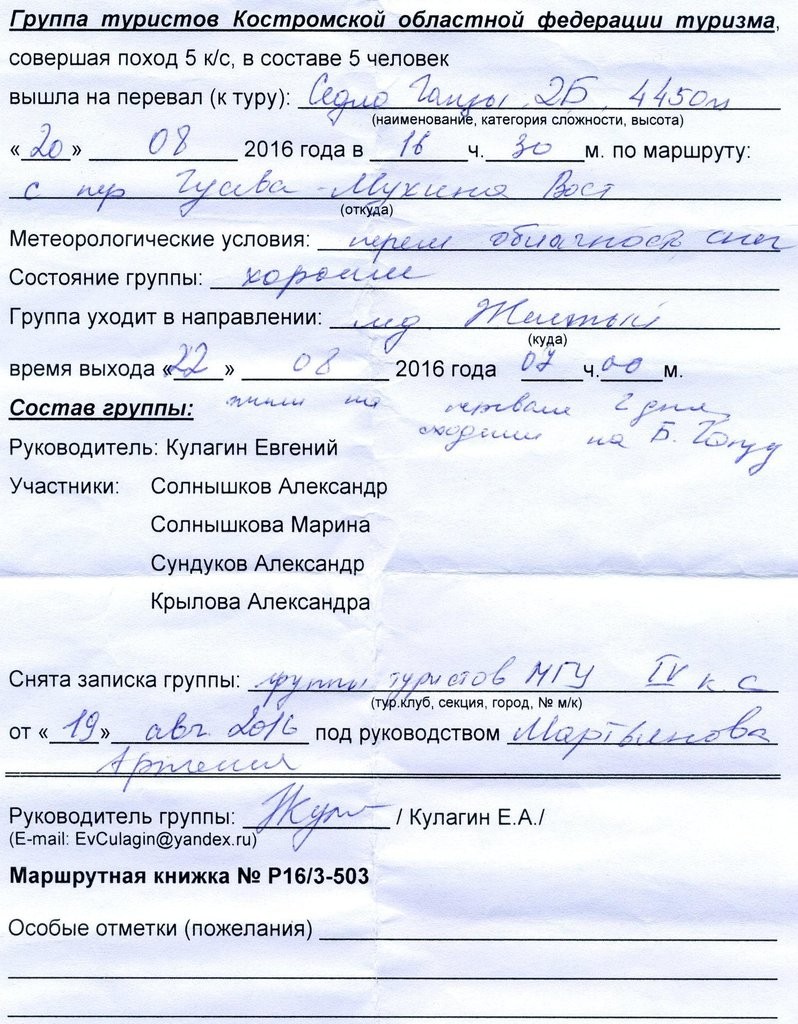 Группа туристов Костромской областной федерации туризма,
совершая поход 5 к/с, в составе 5 человек
вышла на перевал (к туру): Седло Гапзы, 2Б, 4450м
(наименование, категория сложности, высота)
«20» 08 2016 года в 16 ч. 30 м. по маршруту:
с пер Гусева-Мухина Вост
(откуда)
Метеорологические условия: перем облачность снег
Состояние группы: хорошее
Группа уходит в направлении: лд Желтый
(куда)
время выхода «22» 08 2016 года 07 ч. 00 м.
Состав группы: жили на перевале 2 дня,
сходили на Б.
Руководитель: Кулагин Евгений
Участники: Солнышков Александр
Солнышкова Марина
Сундуков Александр
Крылова Александра
Снята записка группы: группы туристов МГУ IV к.с
(тур.клуб, секция, город, № м/к)
от «19» авг 2016 под руководством Мартьянова
Артемия
Руководитель группы: / Кулагин Е.А./
(E-mail: EvCulagin@yandex.ru)
Маршрутная книжка № Р16/3-503
Особые отметки (пожелания)